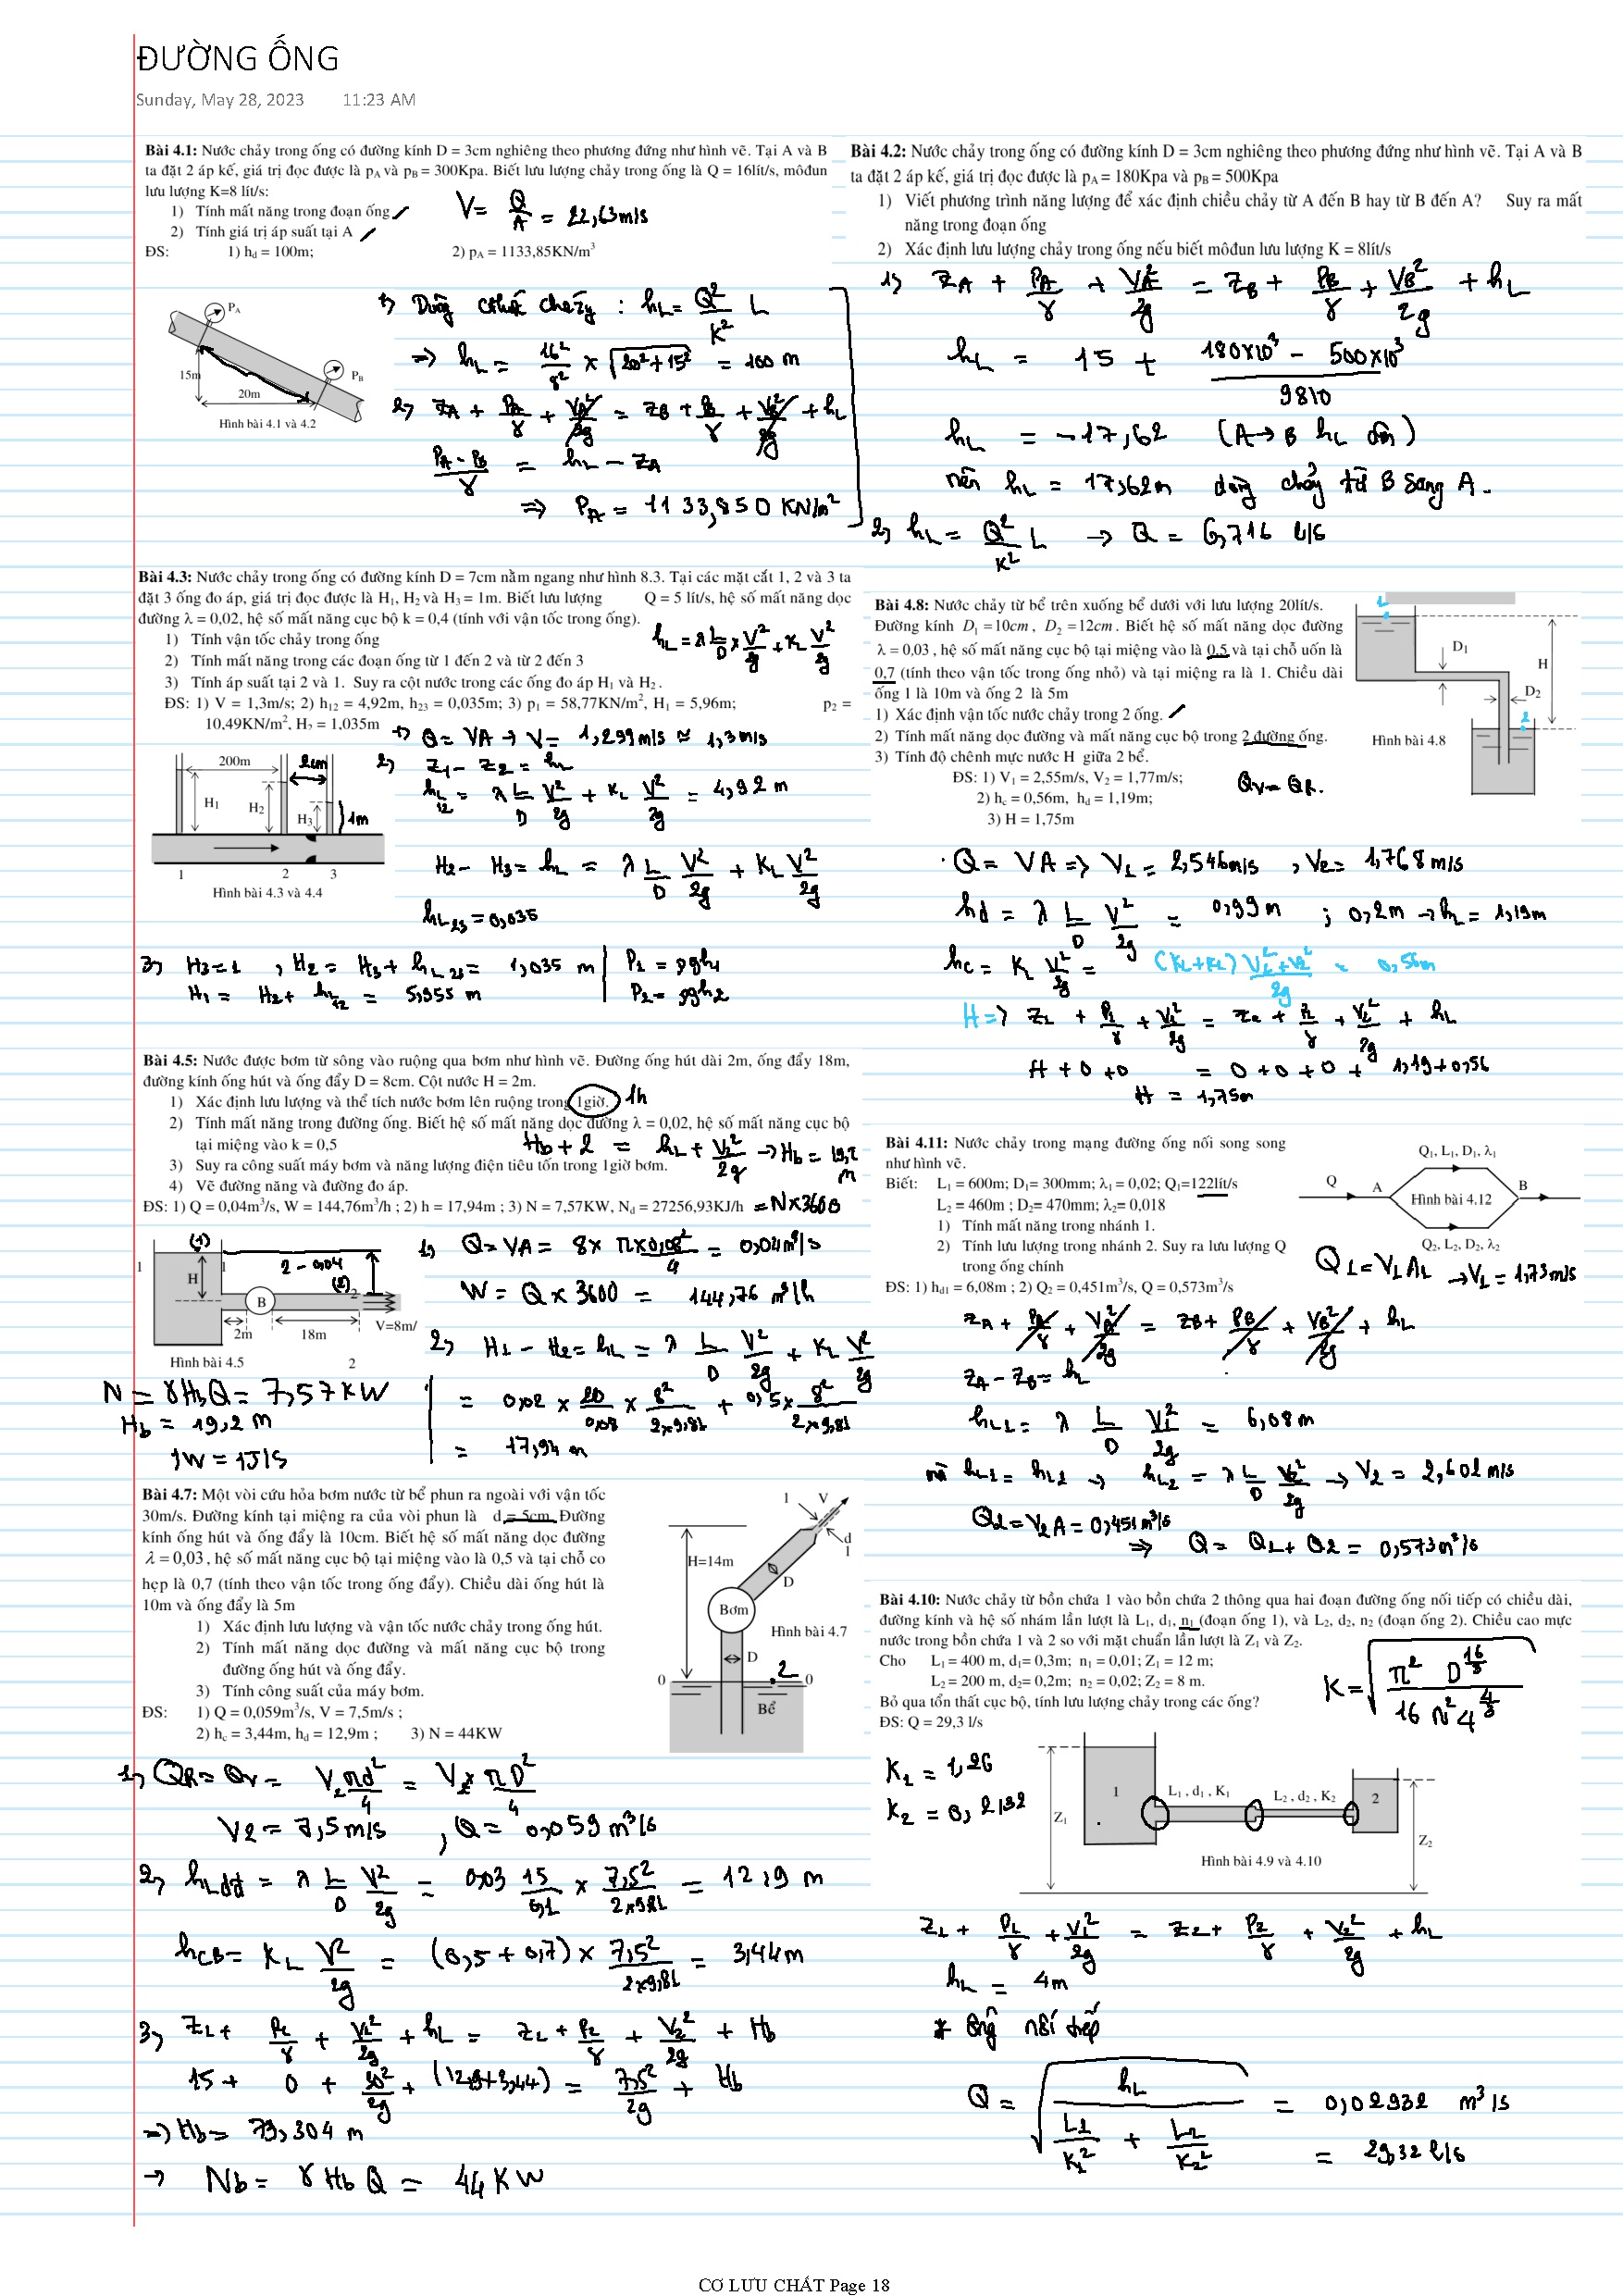 ĐƯỜNG ỐNG
Sunday, May 28, 2023 11:23 AM
Bài 4.1: Nước chảy trong ống có đường kính D = 3cm nghiêng theo phương đứng như hình vẽ. Tại A và B
ta đặt 2 áp kế, giá trị đọc được là pA và pB = 300Kpa. Biết lưu lượng chảy trong ống là Q = 16lít/s, môđun
lưu lượng K=8 lít/s:
1) Tính mất năng trong đoạn ống
2) Tính giá trị áp suất tại A
ĐS: 1) hd = 100m; 2) pA = 1133,85KN/m³
V = Q/A = 22,63m/s
PA
15m
PB
20m
Hình bài 4.1 và 4.2
1) Dùng cthức chezy : hL = Q²/K² L
=> hL = 16²/8² × √(20²+15²) = 100 m
2) ZA + PA/γ + VA²/2g = ZB + PB/γ + VB²/2g + hL
(PA - PB)/γ = hL - ZA
=> PA = 1133,850 KN/m²
Bài 4.2: Nước chảy trong ống có đường kính D = 3cm nghiêng theo phương đứng như hình vẽ. Tại A và B
ta đặt 2 áp kế, giá trị đọc được là pA = 180Kpa và pB = 500Kpa
1) Viết phương trình năng lượng để xác định chiều chảy từ A đến B hay từ B đến A? Suy ra mất
năng trong đoạn ống
2) Xác định lưu lượng chảy trong ống nếu biết môđun lưu lượng K = 8lít/s
1) ZA + PA/γ + VA²/2g = ZB + PB/γ + VB²/2g + hL
hL = 15 + (180×10³ - 500×10³)/9810
hL = -17,62 (A→B hL âm)
nên hL = 17,62m dòng chảy từ B sang A.
2) hL = Q²/K² L → Q = 6,716 l/s
Bài 4.3: Nước chảy trong ống có đường kính D = 7cm nằm ngang như hình 8.3. Tại các mặt cắt 1, 2 và 3 ta
đặt 3 ống đo áp, giá trị đọc được là H1, H2 và H3 = 1m. Biết lưu lượng Q = 5 lít/s, hệ số mất năng dọc
đường λ = 0,02, hệ số mất năng cục bộ k = 0,4 (tính với vận tốc trong ống).
1) Tính vận tốc chảy trong ống
2) Tính mất năng trong các đoạn ống từ 1 đến 2 và từ 2 đến 3
3) Tính áp suất tại 2 và 1. Suy ra cột nước trong các ống đo áp H1 và H2.
ĐS: 1) V = 1,3m/s; 2) h12 = 4,92m, h23 = 0,035m; 3) p1 = 58,77KN/m², H1 = 5,96m; p2 =
10,49KN/m², H2 = 1,035m
hL = λ L/D × V²/2g + KL V²/2g
200m
2cm
H1
H2
H3
1m
1 2 3
Hình bài 4.3 và 4.4
1) Q = VA → V = 1,299m/s ≈ 1,3m/s
2) Z1 - Z2 = hL
hL12 = λ L/D V²/2g + KL V²/2g = 4,92 m
H2 - H3 = hL = λ L/D V²/2g + KL V²/2g
hL23 = 0,035
3) H3 = 1 , H2 = H3 + hL23 = 1,035 m | P1 = ρgh1
H1 = H2 + hL12 = 5,955 m | P2 = ρgh2
Bài 4.8: Nước chảy từ bể trên xuống bể dưới với lưu lượng 20lít/s.
Đường kính D1 = 10cm, D2 = 12cm. Biết hệ số mất năng dọc đường
λ = 0,03, hệ số mất năng cục bộ tại miệng vào là 0,5 và tại chỗ uốn là
0,7 (tính theo vận tốc trong ống nhỏ) và tại miệng ra là 1. Chiều dài
ống 1 là 10m và ống 2 là 5m
1) Xác định vận tốc nước chảy trong 2 ống.
2) Tính mất năng dọc đường và mất năng cục bộ trong 2 đường ống.
3) Tính độ chênh mực nước H giữa 2 bể.
ĐS: 1) V1 = 2,55m/s, V2 = 1,77m/s;
2) hc = 0,56m, hd = 1,19m;
3) H = 1,75m
1
D1
H
D2
2
Hình bài 4.8
QV = QR.
Q = VA => V1 = 2,546m/s , V2 = 1,768 m/s
hd = λ L/D V²/2g = 0,99m ; 0,2m → hL = 1,19m
hc = KL V²/2g = (K1+K2) (V1²+V2²)/2g = 0,56m
H => Z1 + P1/γ + V1²/2g = Z2 + P2/γ + V2²/2g + hL
H + 0 + 0 = 0 + 0 + 0 + 1,19 + 0,56
H = 1,75m
Bài 4.5: Nước được bơm từ sông vào ruộng qua bơm như hình vẽ. Đường ống hút dài 2m, ống đẩy 18m,
đường kính ống hút và ống đẩy D = 8cm. Cột nước H = 2m.
1) Xác định lưu lượng và thể tích nước bơm lên ruộng trong 1giờ. 1h
2) Tính mất năng trong đường ống. Biết hệ số mất năng dọc đường λ = 0,02, hệ số mất năng cục bộ
tại miệng vào k = 0,5
3) Suy ra công suất máy bơm và năng lượng điện tiêu tốn trong 1giờ bơm.
4) Vẽ đường năng và đường đo áp.
ĐS: 1) Q = 0,04m³/s, W = 144,76m³/h ; 2) h = 17,94m ; 3) N = 7,57KW, Nd = 27256,93KJ/h = N×3600
Hb + 2 = hL + V2²/2g → Hb = 19,2 m
(1)
1 1
H
2 - 0,04
(2)
2
B
2m
18m
V=8m/
Hình bài 4.5
2
N = γHbQ = 7,57KW
Hb = 19,2 m
1W = 1J/s
1) Q = VA = 8 × π×0,08²/4 = 0,04m³/s
W = Q × 3600 = 144,76 m³/h
2) H1 - H2 = hL = λ L/D V²/2g + KL V²/2g
= 0,02 × 20/0,08 × 8²/2×9,81 + 0,5 × 8²/2×9,81
= 17,94 m
Bài 4.11: Nước chảy trong mạng đường ống nối song song
như hình vẽ.
Biết: L1 = 600m; D1= 300mm; λ1 = 0,02; Q1=122lít/s
L2 = 460m ; D2= 470mm; λ2= 0,018
1) Tính mất năng trong nhánh 1.
2) Tính lưu lượng trong nhánh 2. Suy ra lưu lượng Q
trong ống chính
ĐS: 1) hd1 = 6,08m ; 2) Q2 = 0,451m³/s, Q = 0,573m³/s
Q1, L1, D1, λ1
Q
A
Hình bài 4.12
B
Q2, L2, D2, λ2
Q1 = V1A1 → V1 = 1,73m/s
ZA + PA/γ + VA²/2g = ZB + PB/γ + VB²/2g + hL
ZA - ZB = hL
hL1 = λ L/D V1²/2g = 6,08m
mà hL1 = hL2 → hL2 = λ L/D V2²/2g → V2 = 2,602m/s
Q2 = V2A = 0,451m³/s
=> Q = Q1 + Q2 = 0,573m³/s
Bài 4.7: Một vòi cứu hỏa bơm nước từ bể phun ra ngoài với vận tốc
30m/s. Đường kính tại miệng ra của vòi phun là d = 5cm. Đường
kính ống hút và ống đẩy là 10cm. Biết hệ số mất năng dọc đường
λ = 0,03, hệ số mất năng cục bộ tại miệng vào là 0,5 và tại chỗ co
hẹp là 0,7 (tính theo vận tốc trong ống đẩy). Chiều dài ống hút là
10m và ống đẩy là 5m
1) Xác định lưu lượng và vận tốc nước chảy trong ống hút.
2) Tính mất năng dọc đường và mất năng cục bộ trong
đường ống hút và ống đẩy.
3) Tính công suất của máy bơm.
ĐS: 1) Q = 0,059m³/s, V = 7,5m/s ;
2) hc = 3,44m, hd = 12,9m ; 3) N = 44KW
1 V
d
1
H=14m
D
Bơm
Hình bài 4.7
D
2
0 0
Bể
1) QR = QV = V1 πd²/4 = V2 × πD²/4
V2 = 7,5m/s , Q = 0,059m³/s
2) hLdđ = λ L/D V²/2g = 0,03 15/0,1 × 7,5²/2×9,81 = 12,9 m
hCB = KL V²/2g = (0,5 + 0,7) × 7,5²/2×9,81 = 3,44m
3) Z1 + P1/γ + V1²/2g + hL = Z2 + P2/γ + V2²/2g + Hb
15 + 0 + 30²/2g + (12,9+3,44) = 7,5²/2g + Hb
=> Hb = 73,304 m
→ Nb = γHbQ = 44KW
Bài 4.10: Nước chảy từ bồn chứa 1 vào bồn chứa 2 thông qua hai đoạn đường ống nối tiếp có chiều dài,
đường kính và hệ số nhám lần lượt là L1, d1, n1 (đoạn ống 1), và L2, d2, n2 (đoạn ống 2). Chiều cao mực
nước trong bồn chứa 1 và 2 so với mặt chuẩn lần lượt là Z1 và Z2.
Cho L1 = 400 m, d1= 0,3m; n1 = 0,01; Z1 = 12 m;
L2 = 200 m, d2= 0,2m; n2 = 0,02; Z2 = 8 m.
Bỏ qua tổn thất cục bộ, tính lưu lượng chảy trong các ống?
ĐS: Q = 29,3 l/s
K = √(π² D^(16/3) / 16 N² 4^(4/3))
K1 = 1,26
K2 = 0,2132
1
L1 , d1 , K1
L2 , d2 , K2
2
Z1
Z2
Hình bài 4.9 và 4.10
Z1 + P1/γ + V1²/2g = Z2 + P2/γ + V2²/2g + hL
hL = 4m
* Ống nối tiếp
Q = √(hL / (L1/K1² + L2/K2²)) = 0,02932 m³/s
= 29,32 l/s
CƠ LƯU CHẤT Page 18